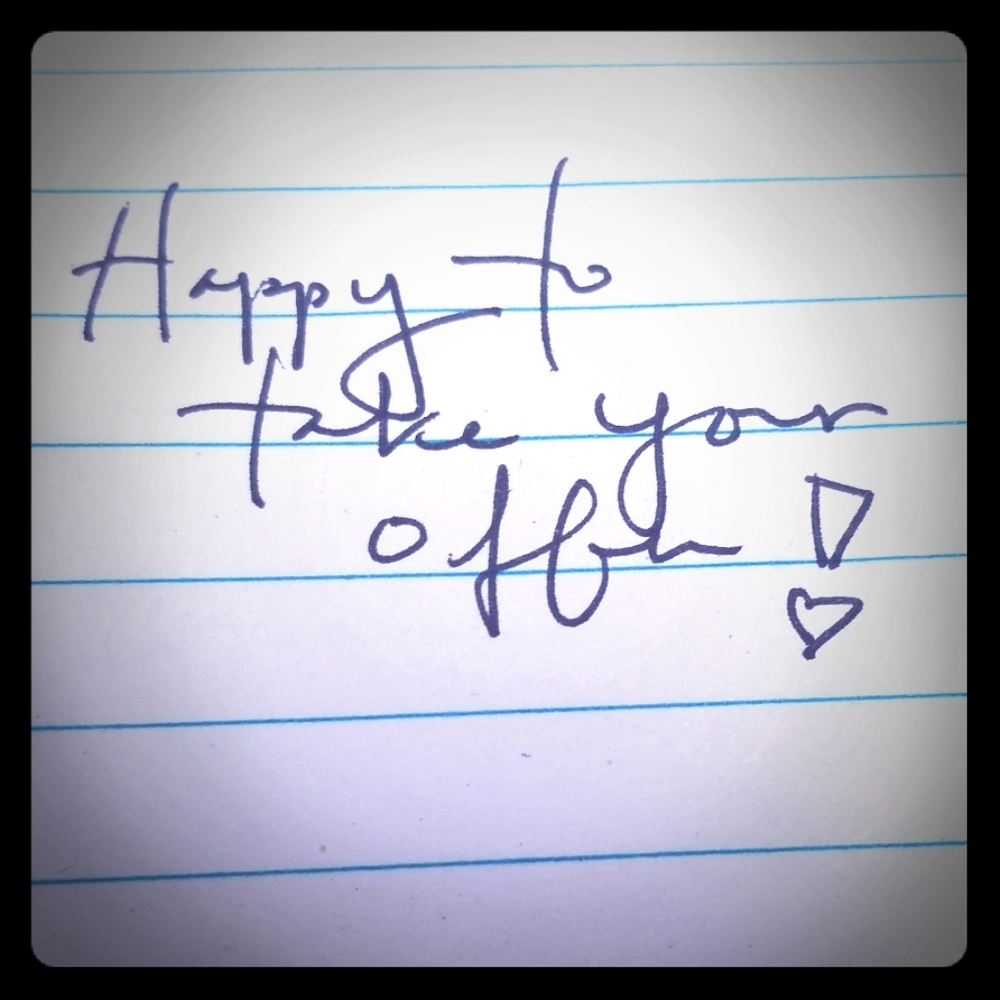 Happy to
take your
offer!